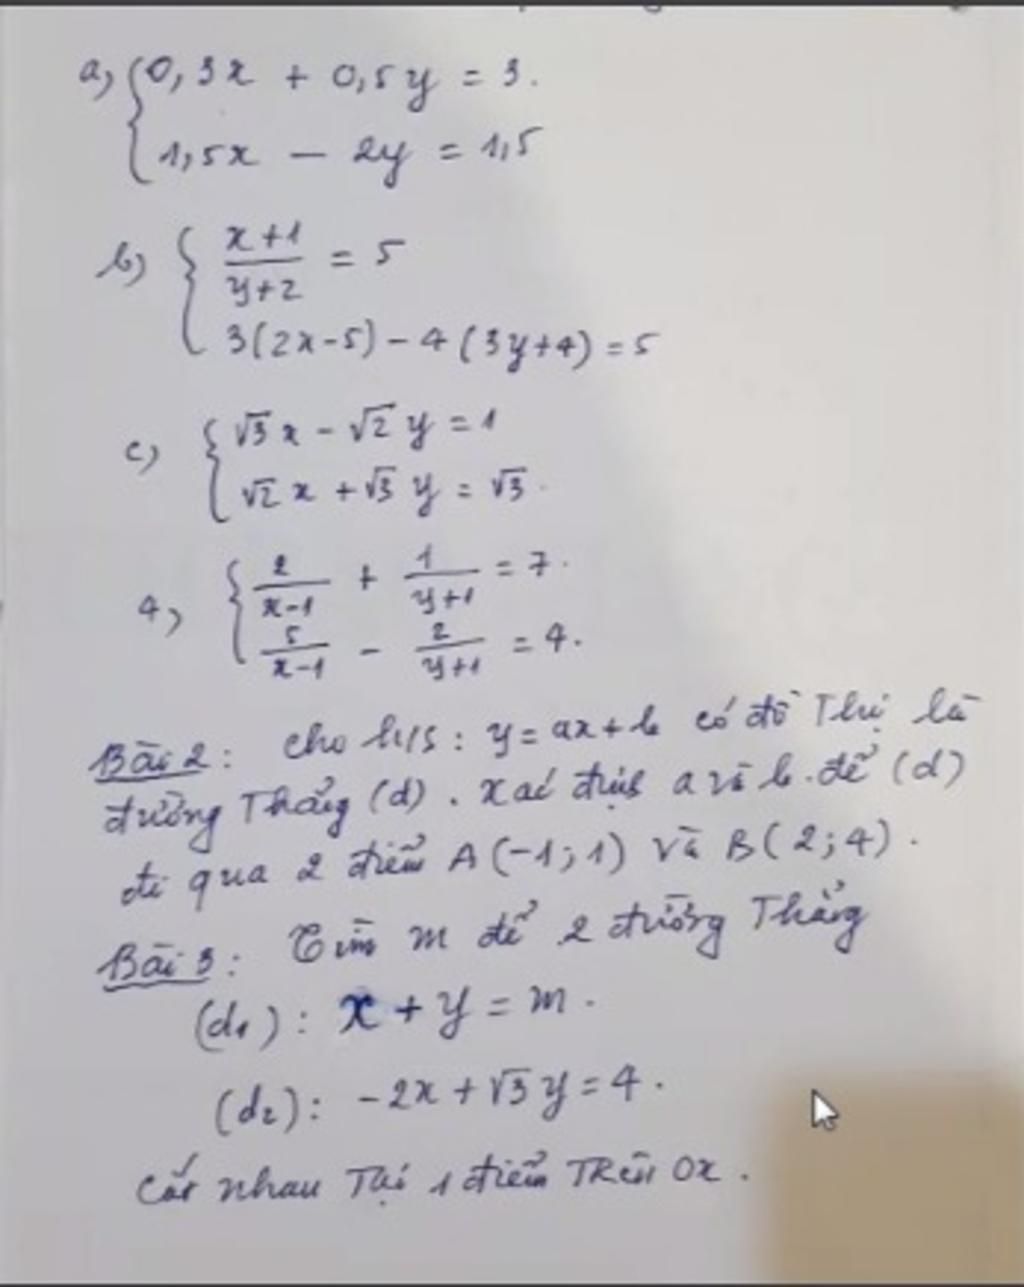 a, 0,3x + 0,5y = 3.
1,5x - 2y = 1,5
b) x+1/y+2 = 5
3(2x-5) - 4(3y+4) = 5
c, √3 x - √2 y = 1
√2 x + √3 y = √3.
4, 2/x-1 + 1/y+1 = 7.
5/x-1 - 2/y+1 = 4.
Bài 2: Cho h/s: y = ax+b có đồ Thị là
đường Thẳng (d). xác định a và b để (d)
đi qua 2 điểm A(-1;1) Và B(2;4).
Bài 3: Tìm m để 2 đường Thẳng
(d1): x + y = m.
(d2): -2x + √3 y = 4.
Cắt nhau Tại 1 điểm Trên Ox.